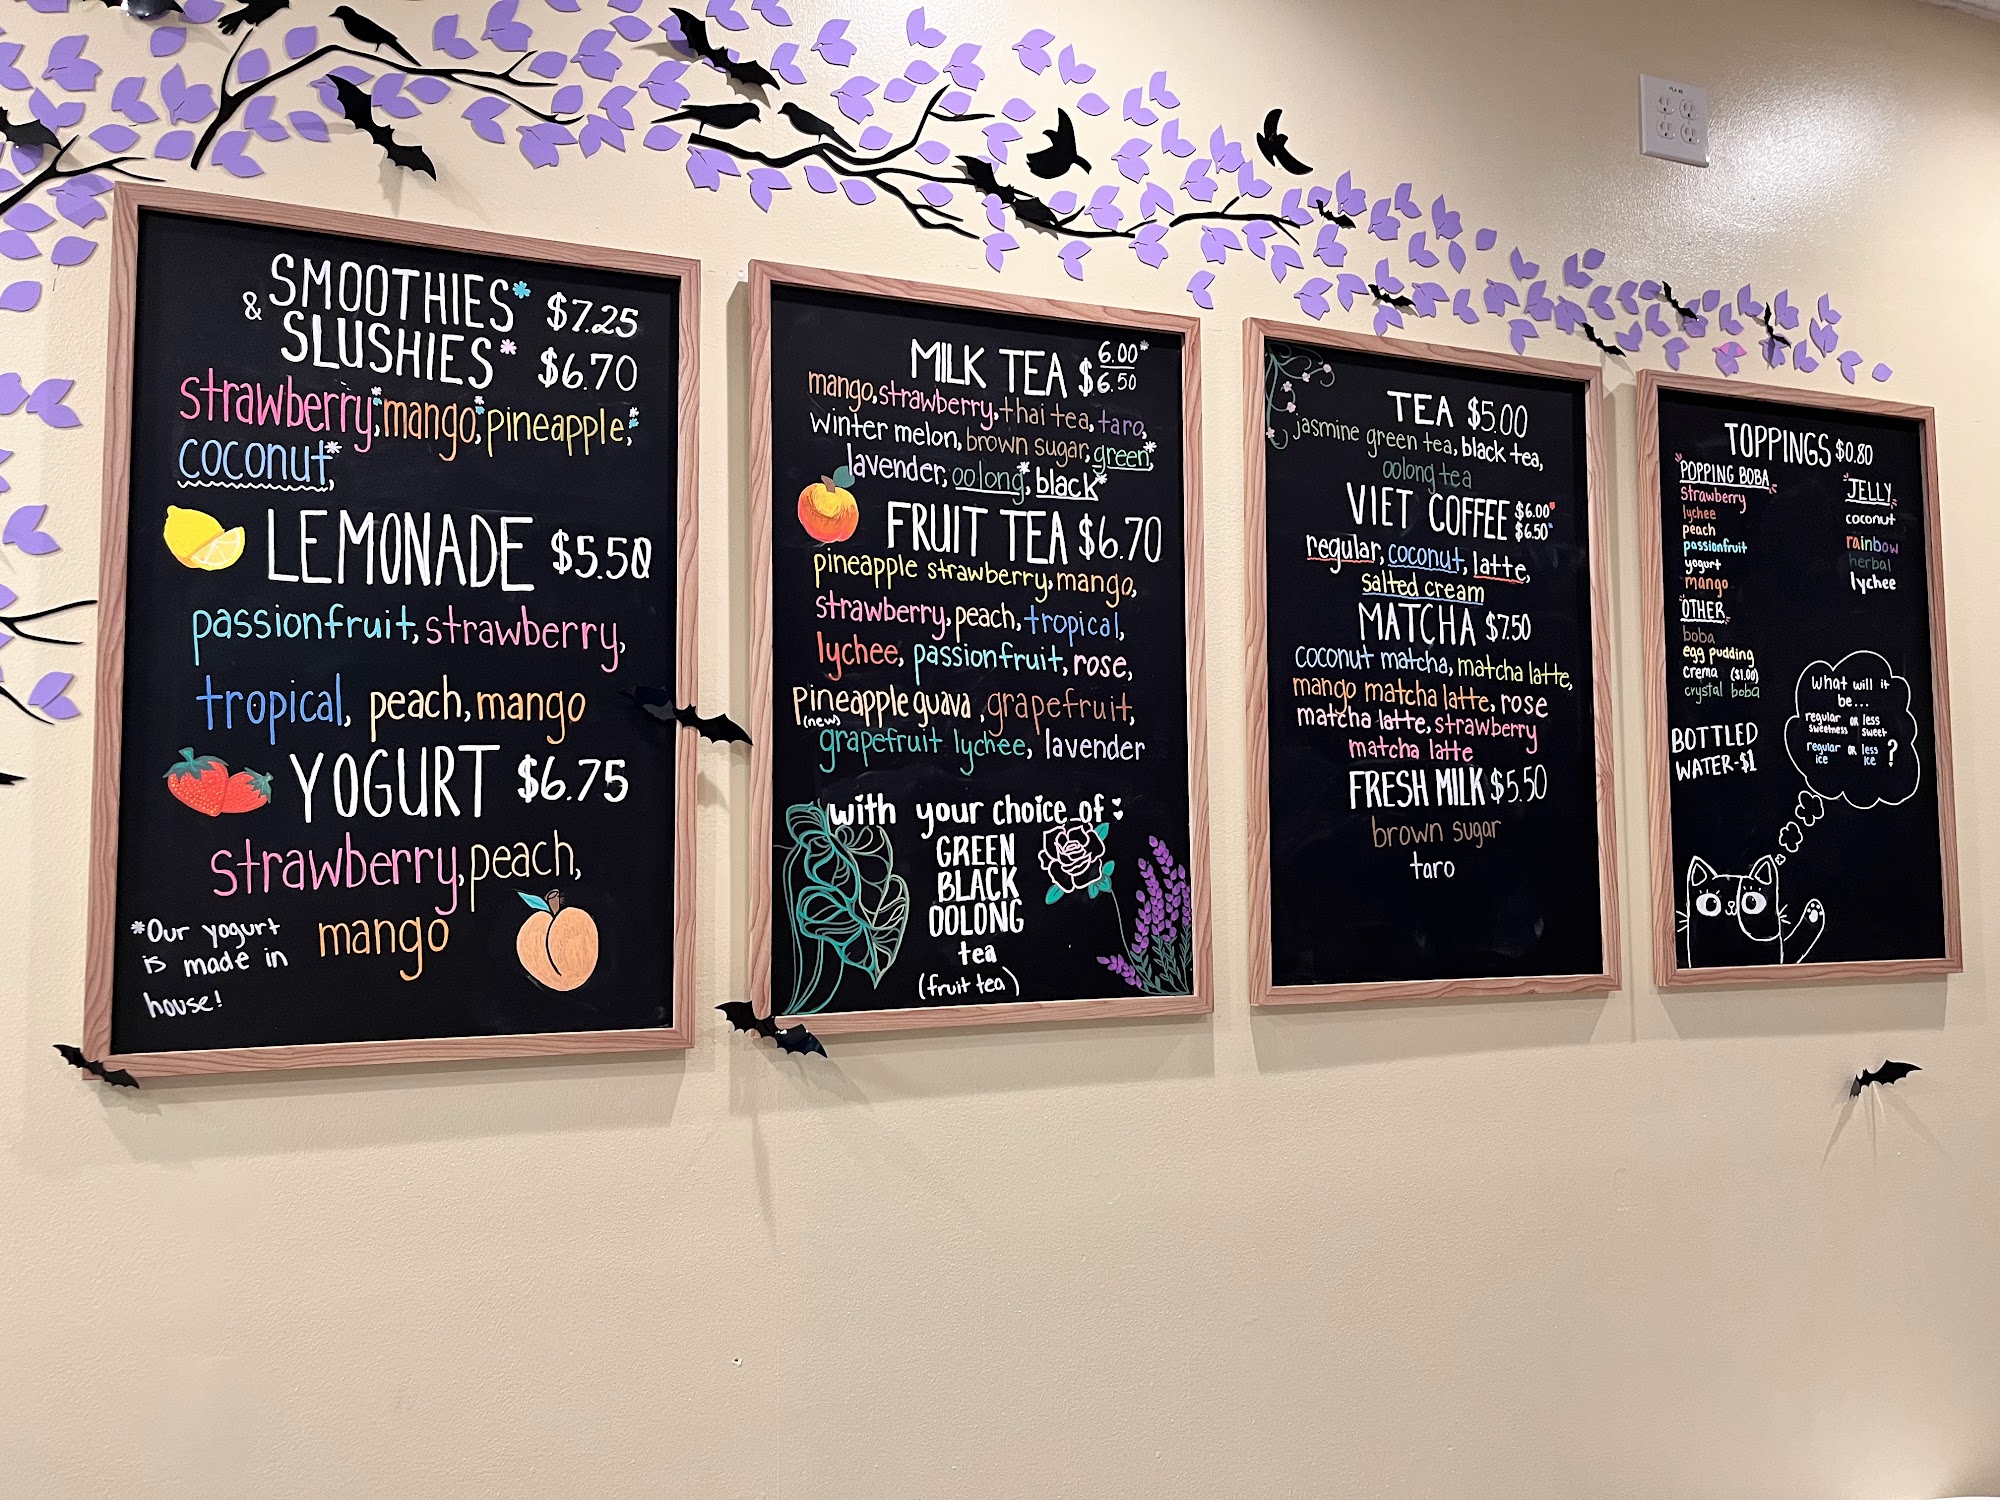 SMOOTHIES* $7.25
& SLUSHIES* $6.70
strawberry,* mango,* pineapple,*
coconut*,
LEMONADE $5.50
passionfruit, strawberry,
tropical, peach, mango
YOGURT $6.75
strawberry, peach,
mango
*Our yogurt
is made in
house!
MILK TEA $ 6.00*
$6.50
mango, strawberry, thai tea, taro,
winter melon, brown sugar, green*,
lavender, oolong*, black*
FRUIT TEA $6.70
pineapple strawberry, mango,
strawberry, peach, tropical,
lychee, passionfruit, rose,
pineapple guava, grapefruit,
(new)
grapefruit lychee, lavender
with your choice of:
GREEN
BLACK
OOLONG
tea
(fruit tea)
TEA $5.00
jasmine green tea, black tea,
oolong tea
VIET COFFEE $6.00*
$6.50*
regular, coconut, latte,
salted cream
MATCHA $7.50
coconut matcha, matcha latte,
mango matcha latte, rose
matcha latte, strawberry
matcha latte
FRESH MILK $5.50
brown sugar
taro
TOPPINGS $0.80
POPPING BOBA
strawberry
lychee
peach
passionfruit
yogurt
mango
OTHER
boba
egg pudding
crema ($1.00)
crystal boba
JELLY
coconut
rainbow
herbal
lychee
BOTTLED
WATER-$1
what will it
be...
regular or less
sweetness sweet
regular or less
ice ice ?